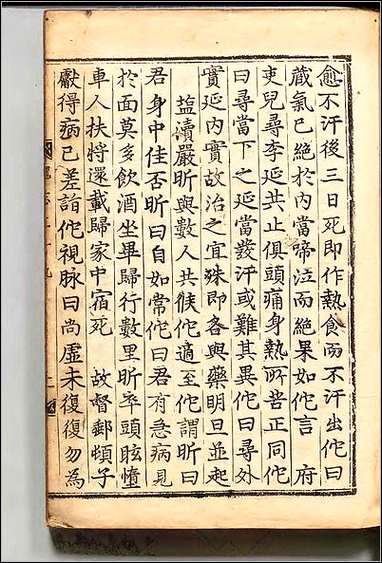 愈不汗後三日死即作熱食而不汗出佗曰
藏氣已絶於内當啼泣而絶果如佗言　府
吏兒尋李延共止俱頭痛身熱所苦正同佗
曰尋當下之延當發汗或難其異佗曰尋外
實延内實故治之宜殊即各與藥明旦並起
　鹽瀆嚴昕與數人共候佗適至佗謂昕曰
君身中佳否昕曰自如常佗曰君有急病見
於面莫多飲酒坐畢歸行數里昕卒頭眩墮
車人扶將還載歸家中宿死　故督郵頓子
獻得病已差詣佗視脉曰尚虚未復復勿爲